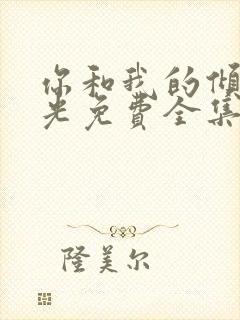 你和我的倾
光免费全集
隆美尔